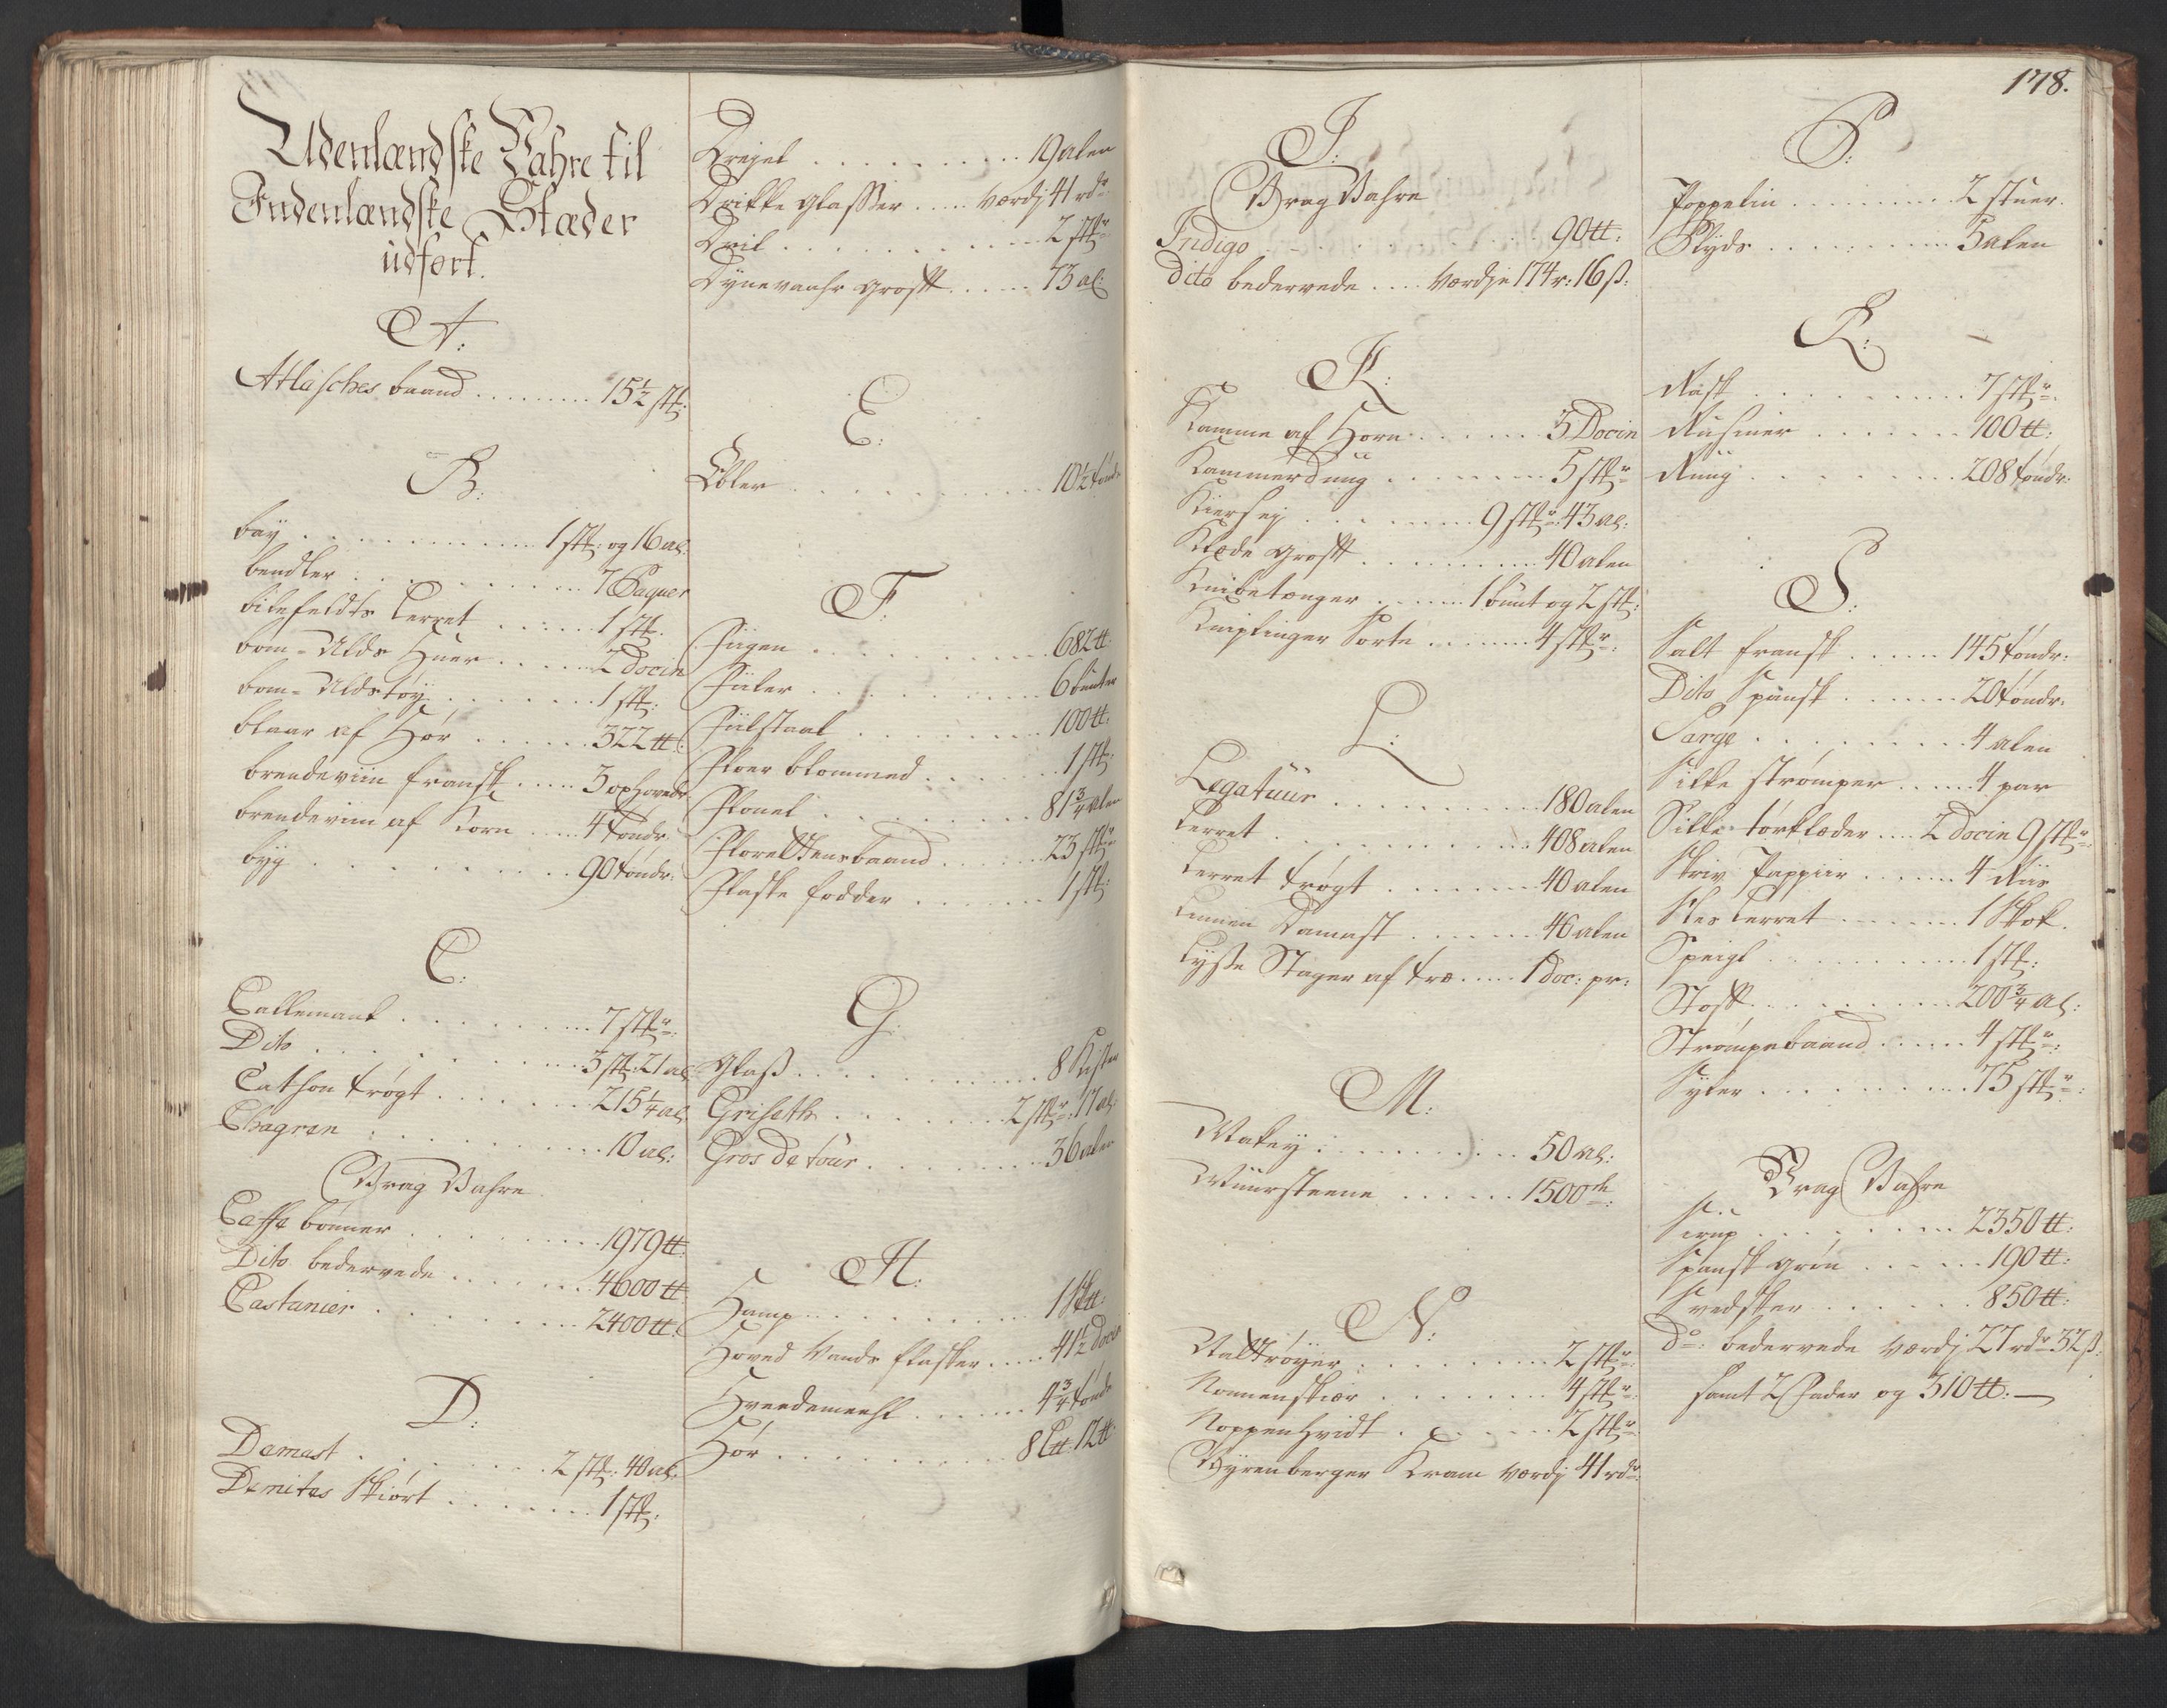 Udenlændske Vahre til
Indenlændske Stæder
udført.
A:
Atlasches baand ......... 15½ stk:
B:
baÿ ............ 1 stk: og 16 al:
bendler ......... 7 Paquer
bilefeldts Lerret ...... 1 stk.
bom-Ulds Huer ..... 2 docin
bom-Uldstøÿ ....... 1 stk:
blaar af Hør ...... 322 ℔:
brendeviin fransk ..... 3 oxhoveder
brendeviin af Korn .... 4 tønder.
bÿg .......... 90 tønder:
C:
Callemank ......... 7 stkr:
Dito ......... 3 stk: 21 al:
Cathon trøgt ....... 215¼ al:
Chagren ......... 10 al:
Vrag Vahre
Caffe bønner ........ 1979 ℔:
Dito bedervede ....... 4600 ℔:
Castanier ........ 2400 ℔:
D:
Damast ........ 2 stk: 40 al:
Demites Skiørt ....... 1 stk:
Dreyel .......... 19 alen
Drikke glasser .... værdj 41 rdr:
Dril ............ 2 stkr:
Dÿnevaahr groft ..... 73 al:
E:
Ebler .......... 10½ tønde
F:
Fiigen ........... 682 ℔:
Fiiler ........... 6 bunter
Fiilstaal ......... 100 ℔:
Floer blommed ...... 1 stk:
Flonel .......... 81¾ alen
Florettensbaand ...... 23 stkr:
Flaske fodder ....... 1 stk:
G:
Glaß ........... 8 Kister
Griseth ......... 2 stkr: 17 al:
Gros de tour ........ 36 alen
H:
Hamp ........... 1 Sk℔:
Hoved Vands flasker ..... 41½ Docin
Hvedemeehl ....... 4¾ tønde
Hør .......... 8 L℔: 12 ℔:
178.
I:
Vrag Vahre
Indigo ........... 90 ℔:
Dito bedervede .... værdje 174 r: 16 ß:
K:
Kamme af Horn ...... 3 Docin
Kammerdüug ........ 5 stkr:
Kiersey ......... 9 stkr: 43 al:
Klæde groft ......... 40 alen
Knibetænger ..... 1 bunt og 2 stk:
Kniplinger Sorte ...... 4 stkr:
L:
Legatüur .......... 180 alen
Lerret ........... 408 alen
Lerret trøgt ....... 40 alen
Linnen Damast ....... 46 alen
Lÿsse Stager af træ ..... 1 doc: pr:
M:
Makeÿ ......... 50 al:
Müursteene ...... 1500 de:
N:
Nattrøÿer ......... 2 stkr:
Nonnenskier ....... 4 stkr:
Noppenhvidt ....... 2 stkr:
Nÿrenberger Kram værdj 41 rdr:
P:
Poppelin ......... 2 stuer.
Plÿds ......... 5 alen
R:
Rask .......... 7 stkr:
Rusiner ....... 100 ℔:
Rüüg ......... 208 tøndr:
S:
Salt fransk ..... 145 tøndr:
Dito Spansk ....... 20 tøndr:
Sarge .......... 4 alen
Silke strømper ..... 4 par
Silke tørklæder .... 2 docin 9 stkr:
Skriv Pappiir ...... 4 Riis
Sles Lerret ....... 1 Skok.
Speigl .......... 1 stk:
Stoff .......... 200¾ al:
Strømpebaand ...... 4 stkr:
Sÿler ......... 75 stkr:
Vrag Vahre
Sirup ........ 2350 ℔:
Spansk grøn ...... 190 ℔:
Svedsker ...... 850 ℔:
Do: bedervede værdj 27 rdr 32 ß:
samt 2 Fader og 310 ℔: —